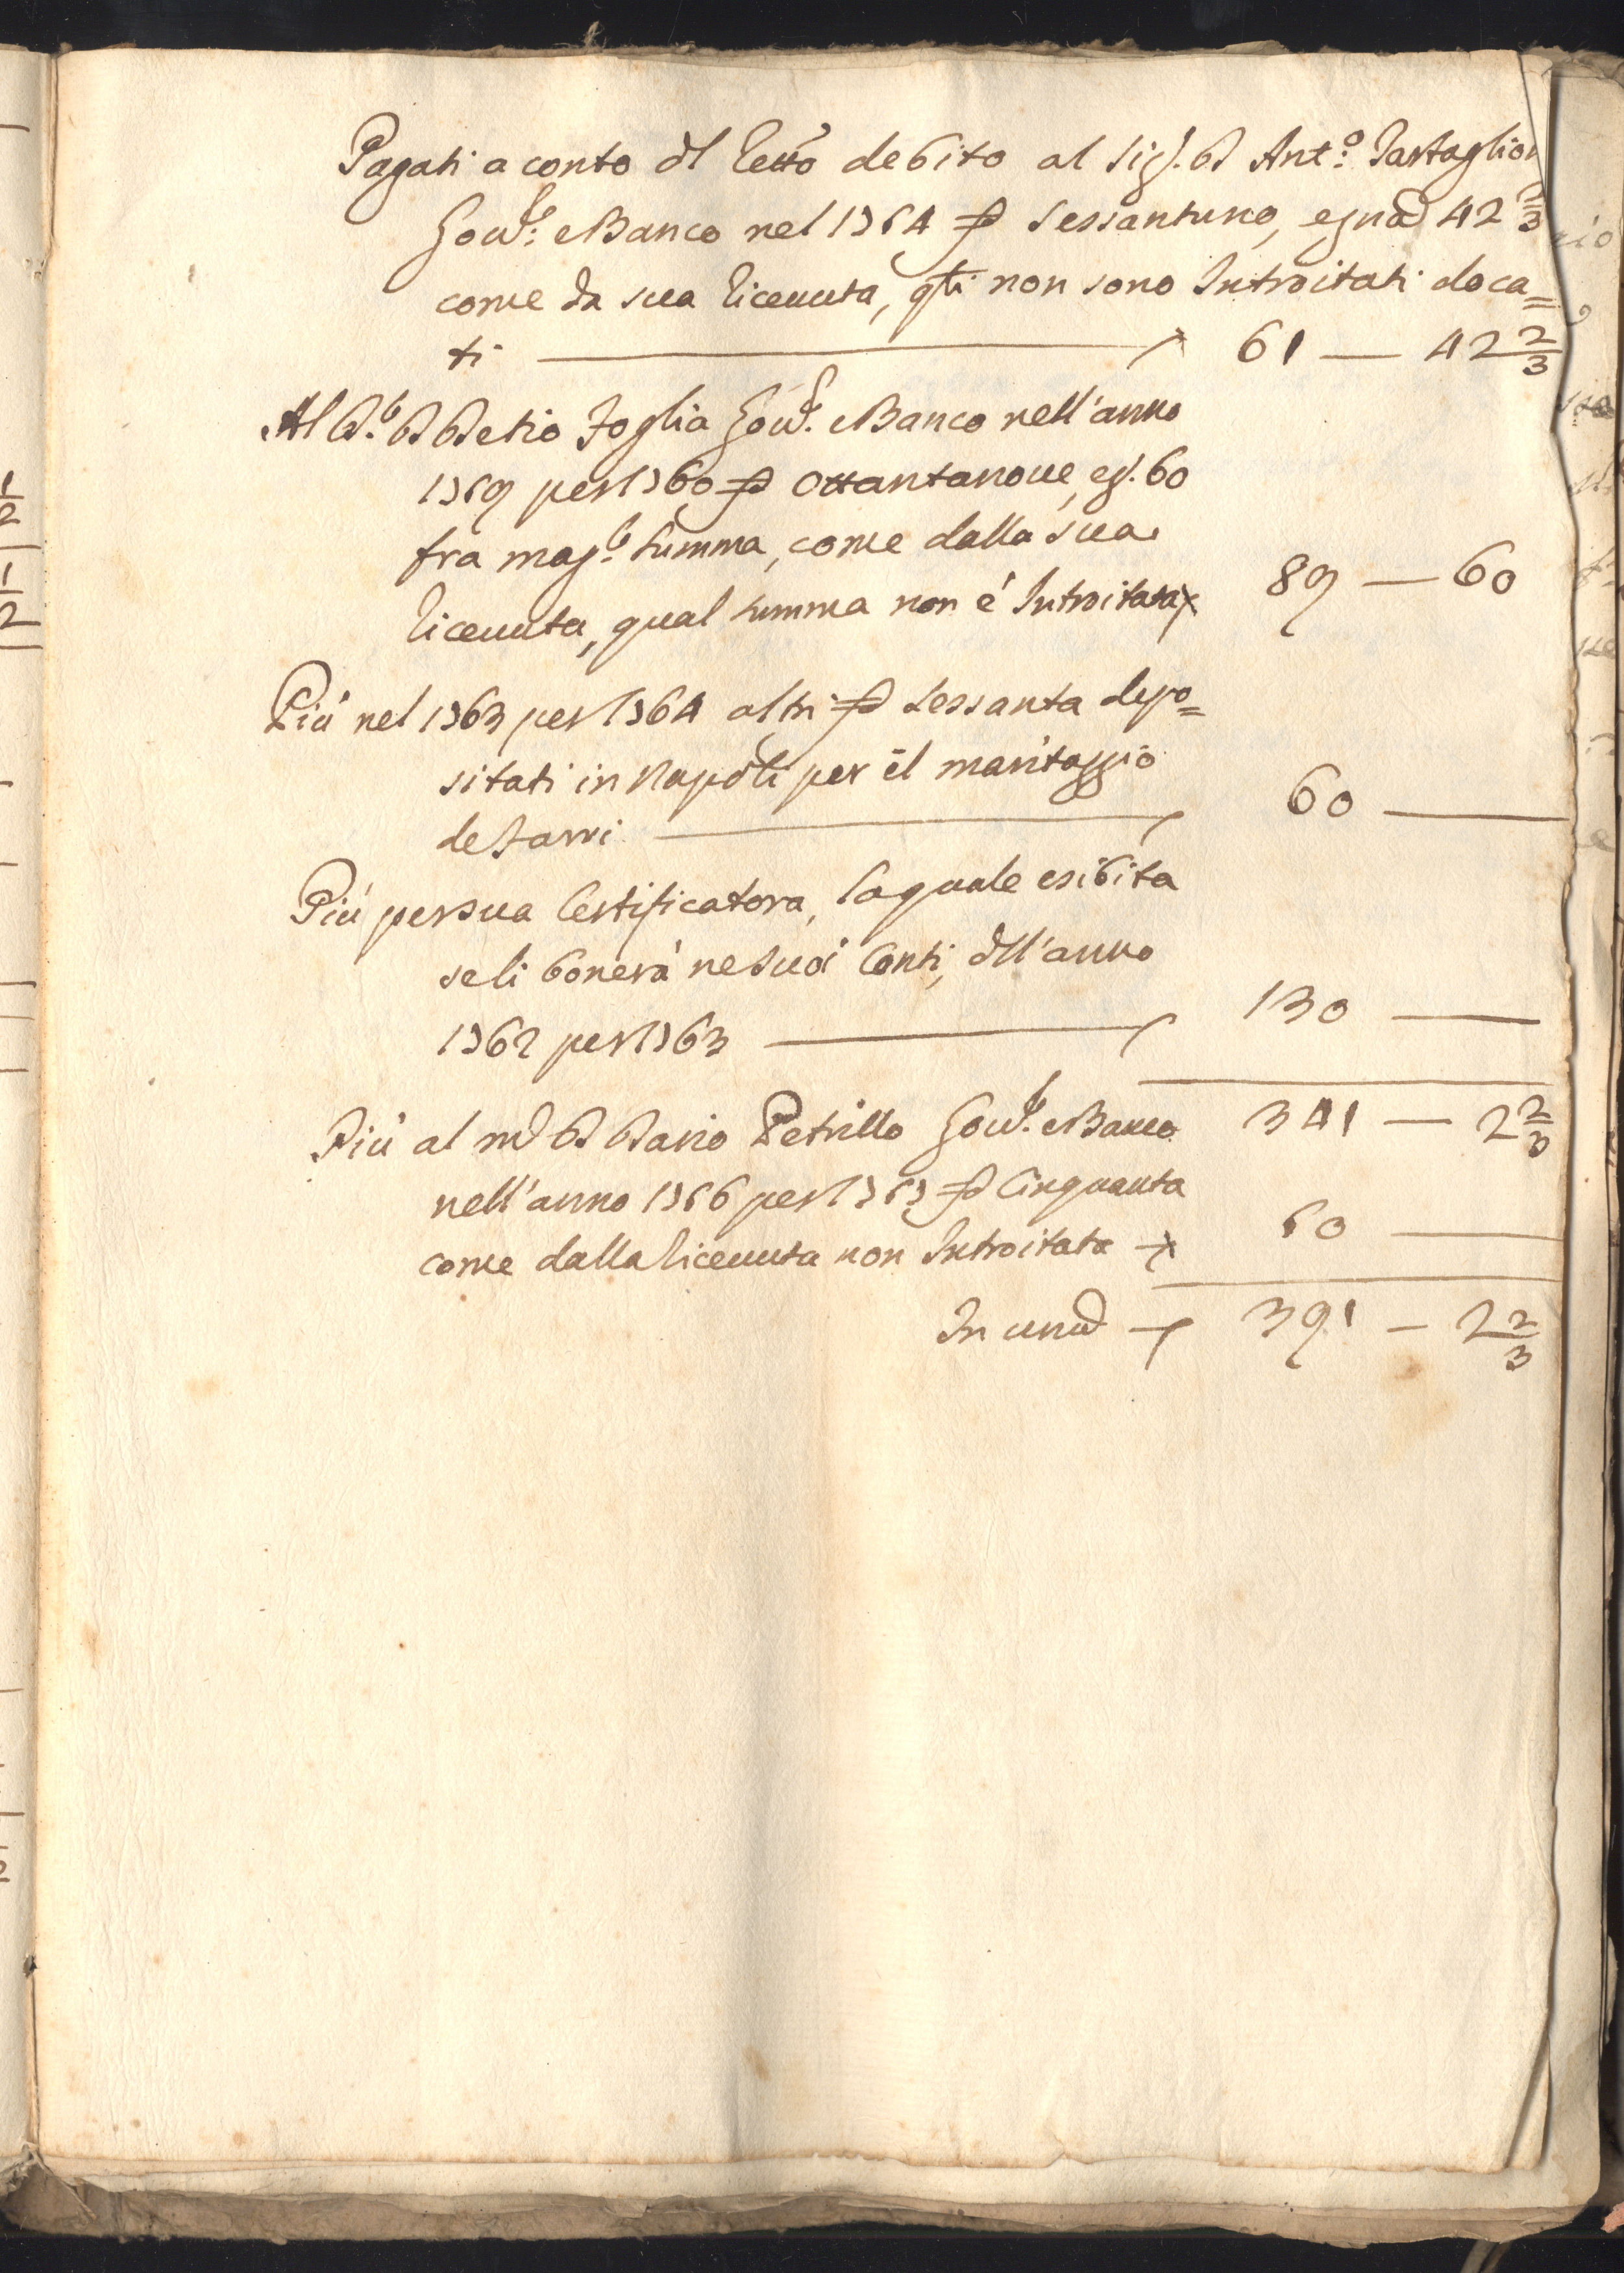 Pagati a conto dl retto debito al Sig.r D Ant.o Tartaglion
Gov.re e Banco nel 1764 d Sessantuno, e gna 42 2/3
come da sua ricevuta, qti non sono Introitati doca=
ti 61 — 42 2/3
Al D.r D Detio Foglia Gov.re e Banco nell'anno
1759 per 1760 d Ottantanove, e g. 60
fra mag.r Summa, come dalla sua
ricevuta, qual summa non é Introitata 89 — 60
Più nel 1763 per 1764 altri d Sessanta depo=
sitati in Napoli per il maritaggio
de Iarri 60 —
Più per sua Certificatora, la quale esibita
se li bonerà ne Suoi Conti, dll'anno
1762 per 1763 130 —
341 — 2 2/3
Più al md D Dario Petrillo Gov.re e Banco
nell'anno 1766 per 1767 d Cinquanta
come dalla ricevuta non Introitata 50 —
In unu 391 — 2 2/3